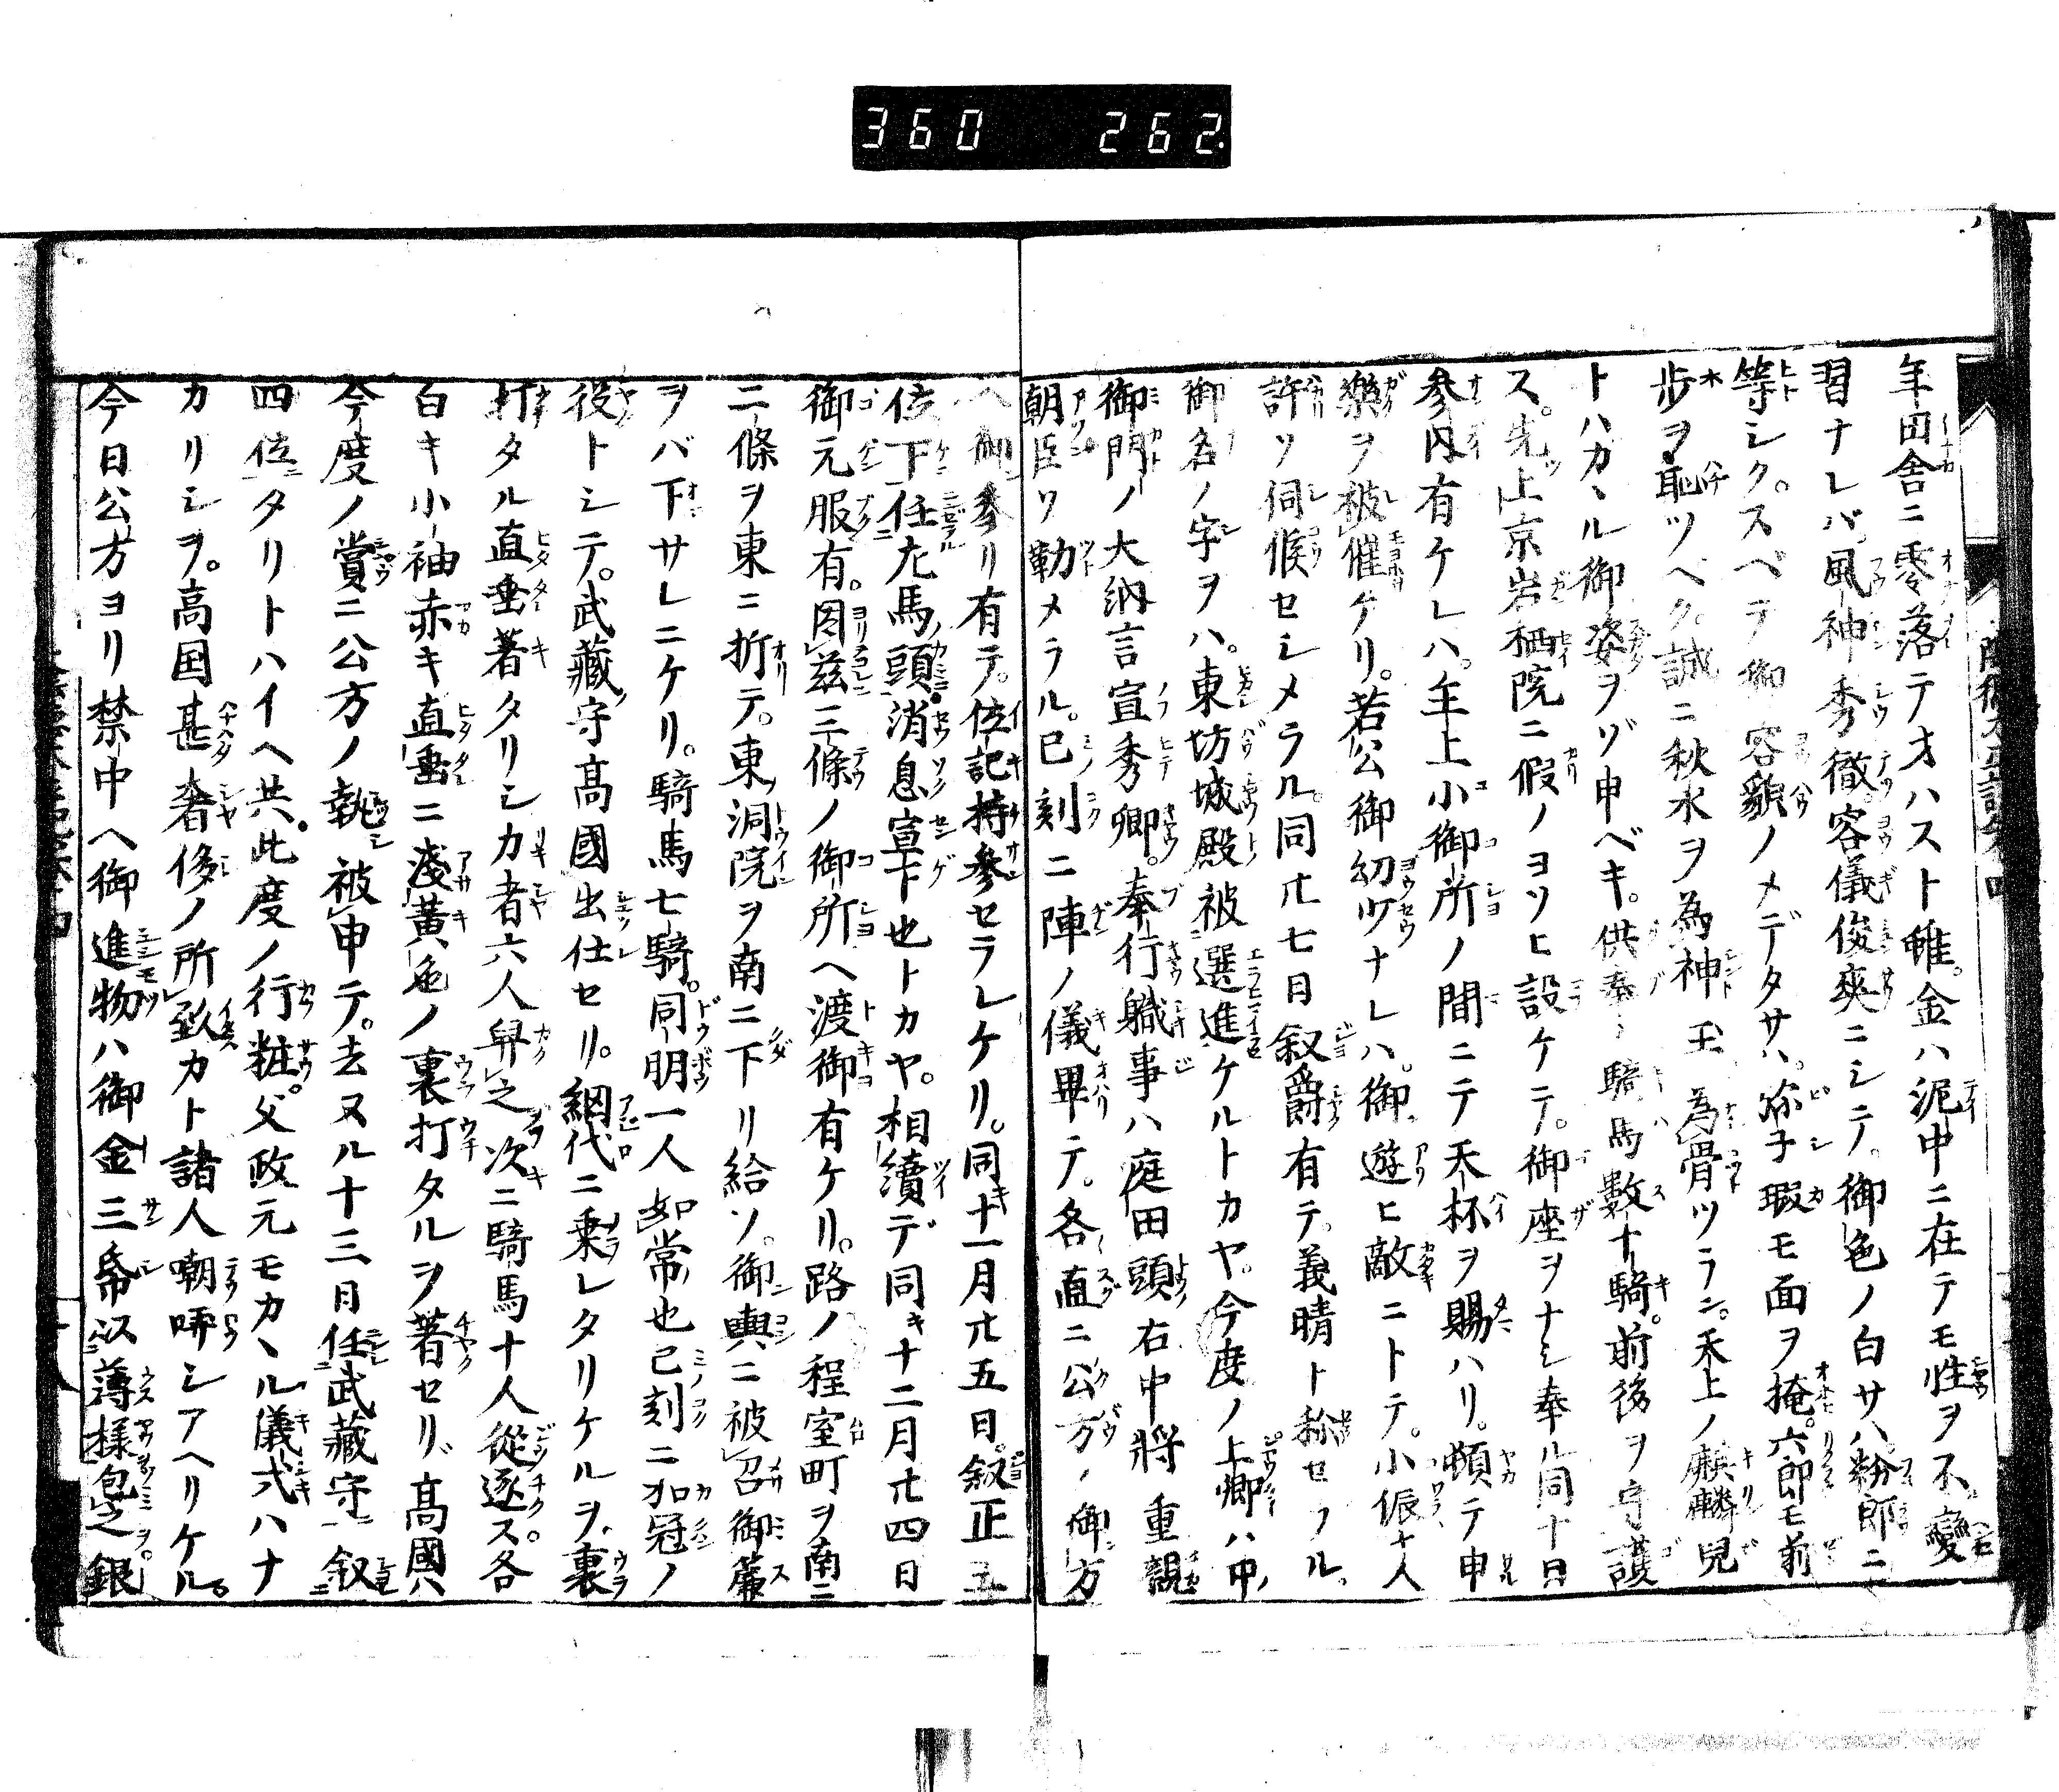 360 262
年田舎ニ零落テオハスト雖。金ハ泥中ニ在テモ性ヲ不變
習ナレバ、風神秀徹。容儀俊爽ニシテ。御色ノ白サハ粉郎ニ
等シク。スベテ御容貌ノメデタサハ。弥子瑕モ面ヲ掩。六郎モ前
歩ヲ恥ツヘク。誠ニ秋水ヲ為神玉為骨ツラン。天上ノ麒麟兒
トハカヽル御姿ヲゾ申ベキ。供奉ノ騎馬數十騎。前後ヲ守護
ス。先上京岩栖院ニ假ノヨソヒ設ケテ。御座ヲナシ奉ル同十日
参内有ケレハ。年上小御所ノ間ニテ天杯ヲ賜ハリ。頓テ申
樂ヲ被催ケリ。若公御幼少ナレハ。御遊ヒ敵ニトテ。小侲十人
許リ伺候セシメラル。同廿七日叙爵有テ。義晴ト称セラル。
御名ノ字ヲハ。東坊城殿被選進ケルトカヤ。今度ノ上卿ハ中ノ
御門ノ大納言宣秀卿。奉行職事ハ庭田頭右中将重親
朝臣ソ勤メラル。巳刻ニ陣ノ儀畢テ。各直ニ公方ノ御方
ヘ御参リ有テ。位記持参セラレケリ。同十一月廿五日。叙正五
位下任左馬頭。消息宣下也トカヤ。相續デ同キ十二月廿四日
御元服有。因茲三條ノ御所ヘ渡御有ケリ。路ノ程室町ヲ南ニ
二條ヲ東ニ折テ。東洞院ヲ南ニ下リ給ソ。御輿ニ被召御簾
ヲバ下サレニケリ。騎馬七騎。同朋一人如常也巳刻ニ加冠ノ
役トシテ。武藏守高國出仕セリ。網代ニ乗レタリケルヲ、裏
打タル直垂著タリシ力者六人舁之次ニ騎馬十人從逐ス。各
白キ小袖赤キ直垂ニ淺黄色ノ裏打タルヲ著セリ。高國ハ
今度ノ賞ニ公方ノ執被申テ。去ヌル十三日任武藏守叙
四位タリトハイヘ共。此度ノ行粧。父政元モカヽル儀式ハナ
カリシヲ。高国甚奢侈ノ所致カト諸人嘲哢シアヘリケル。
今日公方ヨリ禁中ヘ御進物ハ御金三帋以薄様包之銀